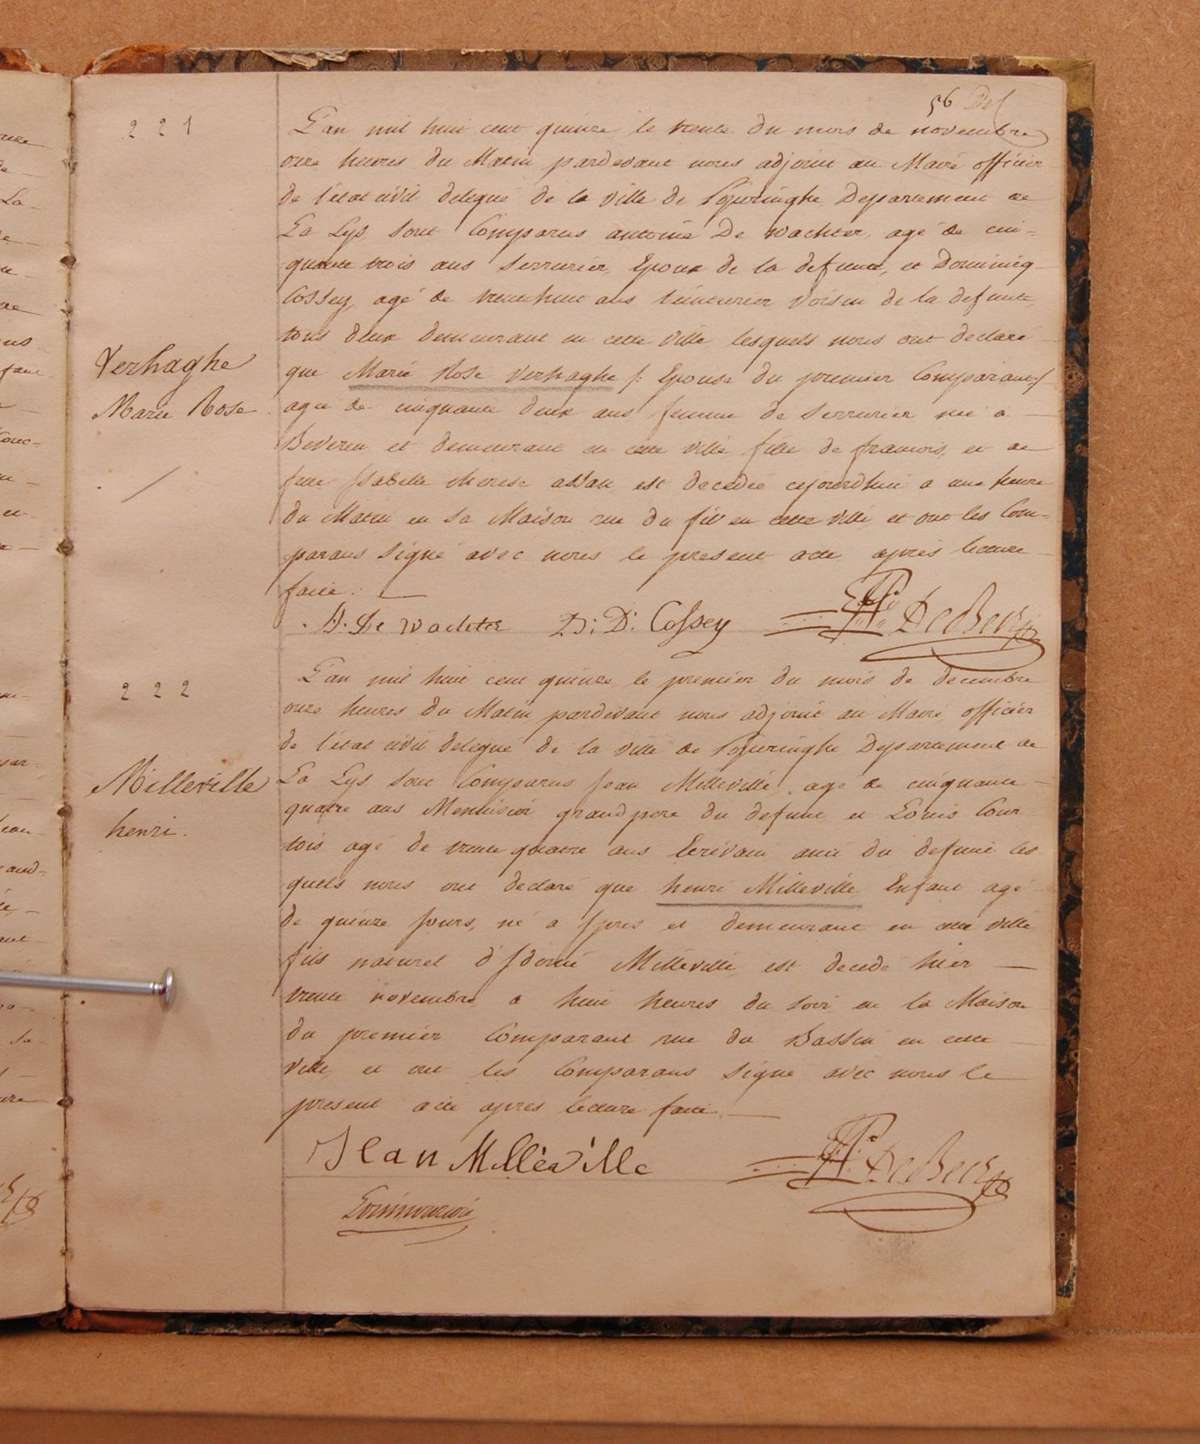 56
221
L'an mil huit cent quinze le trente du mois de novembre
onze heures du Matin pardevant nous adjoint au Maire officier
de l'état civil delegué de la ville de Poperinghe Departement de
La Lys sont Comparus antoine De wachter, agé de cin=
quante trois ans Serrurier, Epoux de la defunte, et Dominiq
Cossey, agé de trente huit ans teinturier voisin de la defunte,
tous deux demeurant en cette ville lesquels nous ont declaré
que Marie Rose Verhaghe /: Epouse du premier Comparant/
Verhaghe
Marie Rose
agée de cinquante deux ans femme de Serrurier née a
Beveren et demeurant en cette ville fille de francois, et de
feue Isabelle therese est decedée cejourdhui a une heure
du Matin en sa Maison rue du en cette ville et ont les Com=
parans signé avec nous le present acte après lecture
faite.
A. De wachter D: D: Cossey DeBeir
222
L'an mil huit cent quinze le premier du mois de decembre
onze heures du Matin pardevant nous adjoint au Maire officier
de l'état civil delegué de la ville de Poperinghe Departement de
La Lys sont Comparus Jean Milleville, agé de cinquante
Milleville
henri.
quatre ans Menuisier grandpere du defunt et Louis Cour
tois agé de trente quatre ans Ecrivain ami du defunt les
quels nous ont declaré que henri Milleville Enfant agé
de quinze jours, né a Ipres et demeurant en cette ville
fils naturel d'Idonie Milleville est decedé hier
trente novembre a huit heures du soir en la Maison
du premier Comparant rue du Bassin en cette
ville, et ont les Comparans signé avec nous le
present acte après lecture faite.
Jean Milleville DeBeir